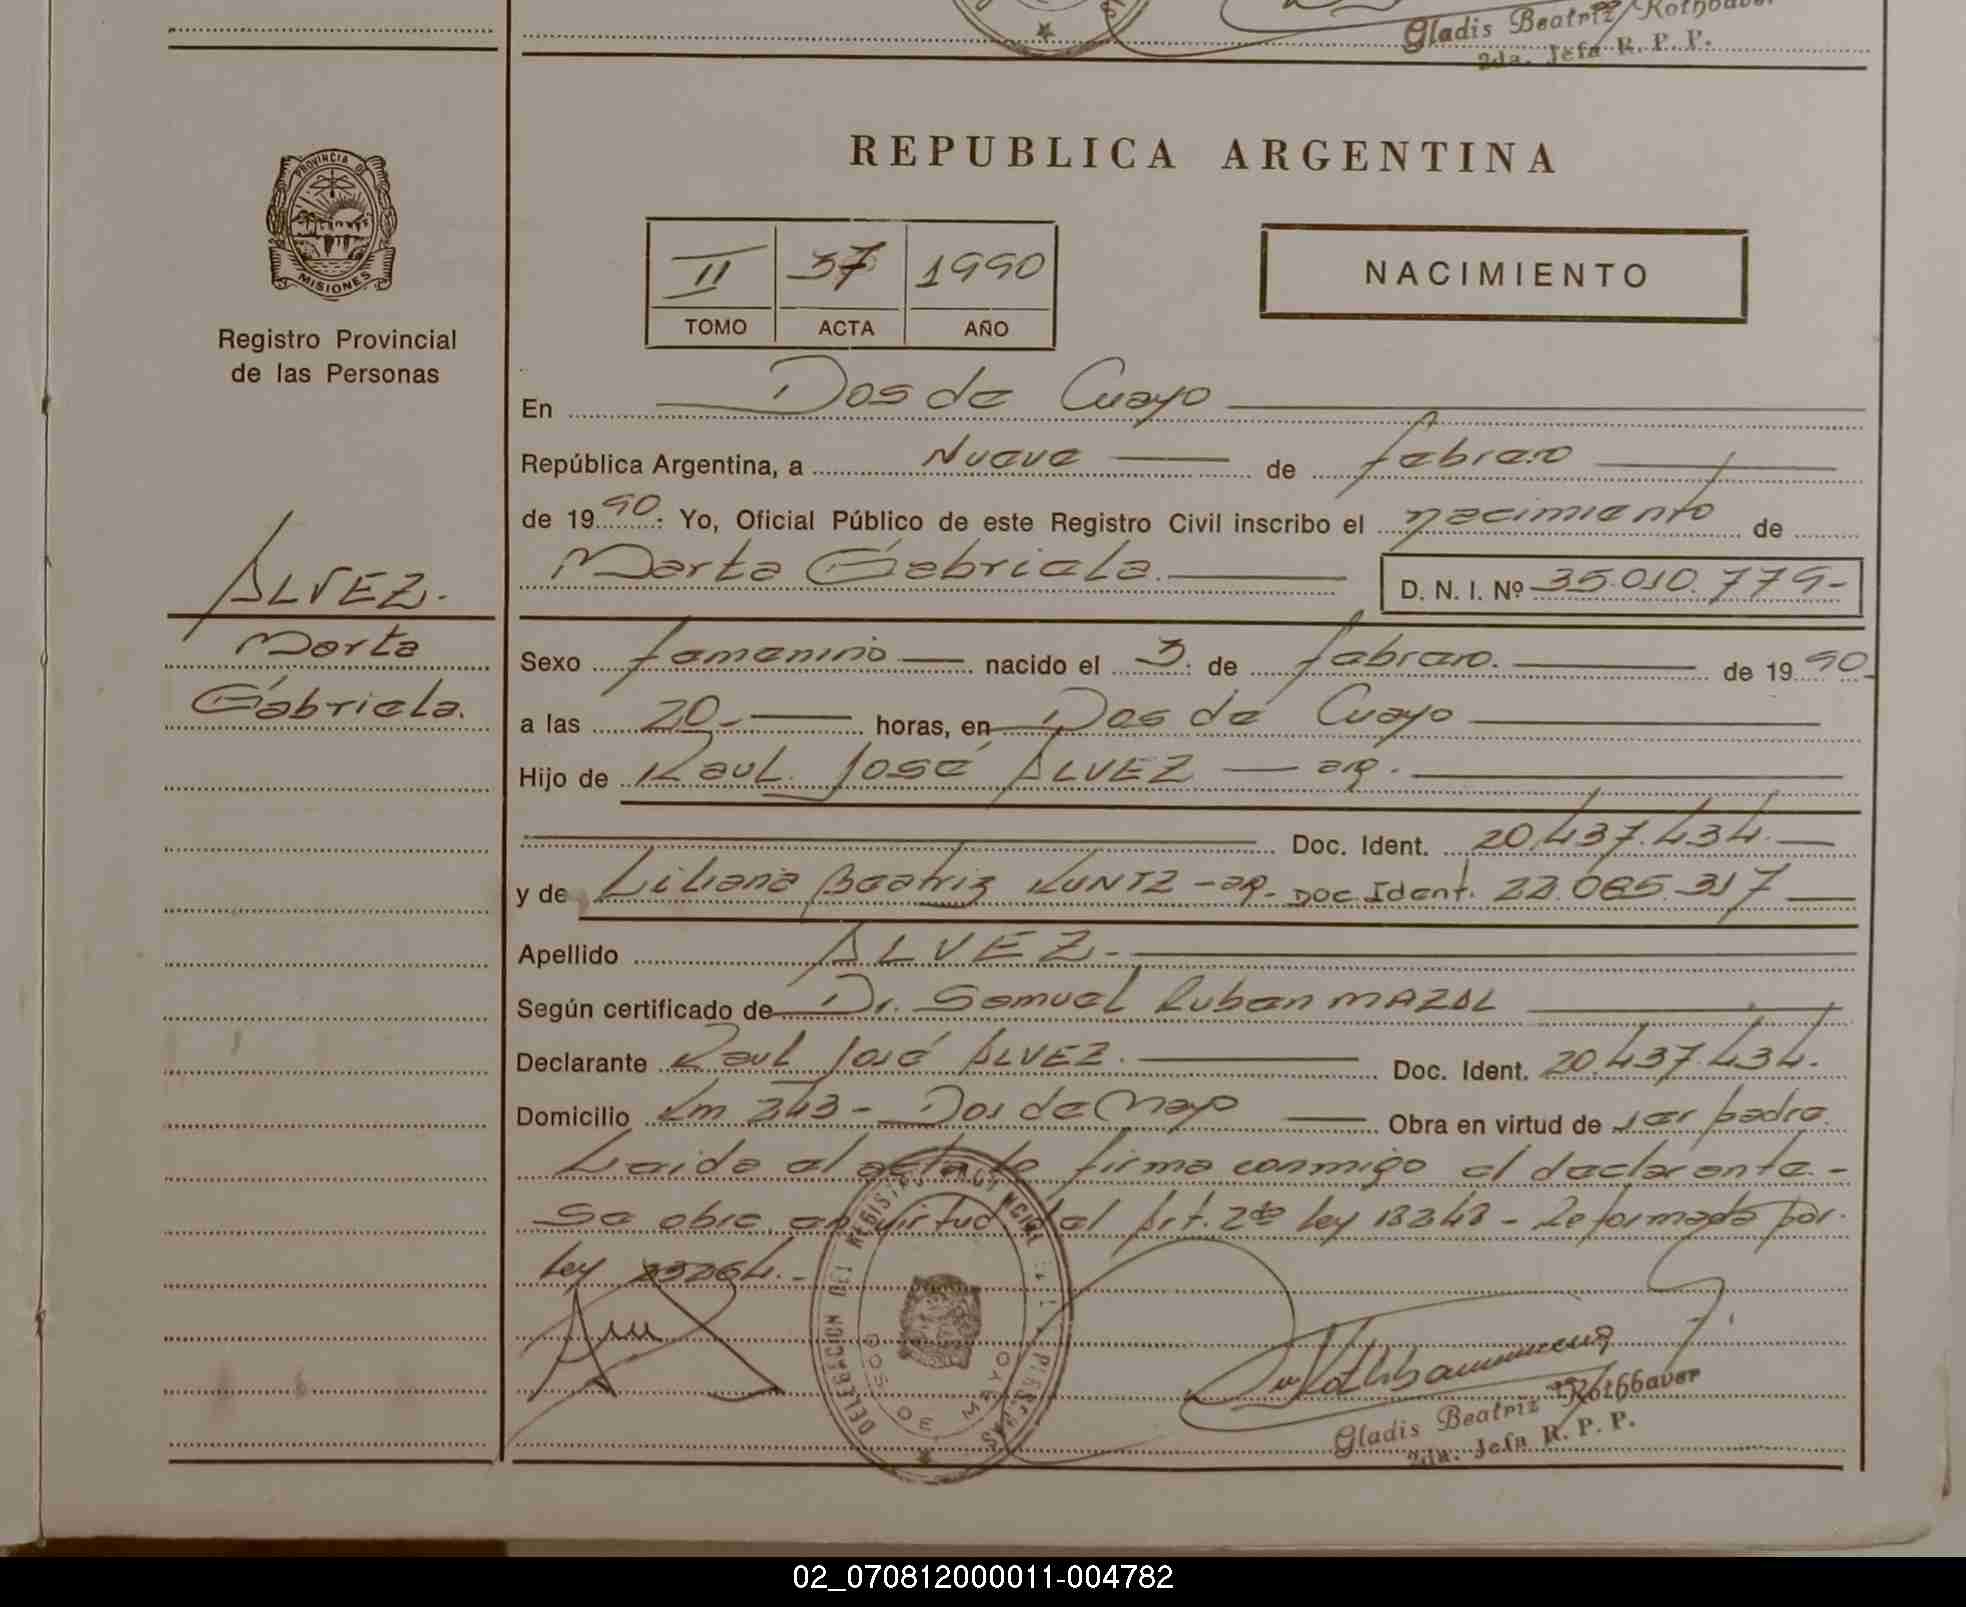 Gladis Beatriz Rothbauer
2da. Jefa R. P. P.
REPUBLICA ARGENTINA
PROVINCIA DE
MISIONES
Registro Provincial
de las Personas
II 37 1990
TOMO ACTA AÑO
NACIMIENTO
En Dos de Mayo
República Argentina, a Nueve de febrero
de 1990. Yo, Oficial Público de este Registro Civil inscribo el nacimiento de
Marta Gabriela. D. N. I. Nº 35.010.779-
ALVEZ.
Marta
Gabriela.
Sexo femenino nacido el 3 de febrero. de 1990
a las 20 horas, en Dos de Mayo
Hijo de Raul José ALVEZ arg.
Doc. Ident. 20.437.434.
y de Liliana Beatriz KUNTZ - arg. Doc Ident. 22.085.317
Apellido ALVEZ.
Según certificado de Dr. Samuel Ruben MAZAL
Declarante Raul José ALVEZ. Doc. Ident. 20.437.434.
Domicilio Km 243 - Dos de Mayo Obra en virtud de ser padre.
Leida el acta la firma conmigo el declarante.-
Se obra en virtud del Art. 2do ley 18248 - Reformada por
ley 23264.-
DELEGACION DEL REGISTRO PROVINCIAL DE LAS PERSONAS
DOS DE MAYO
Gladis Beatriz Rothbauer
2da. Jefa R. P. P.
02_070812000011-004782